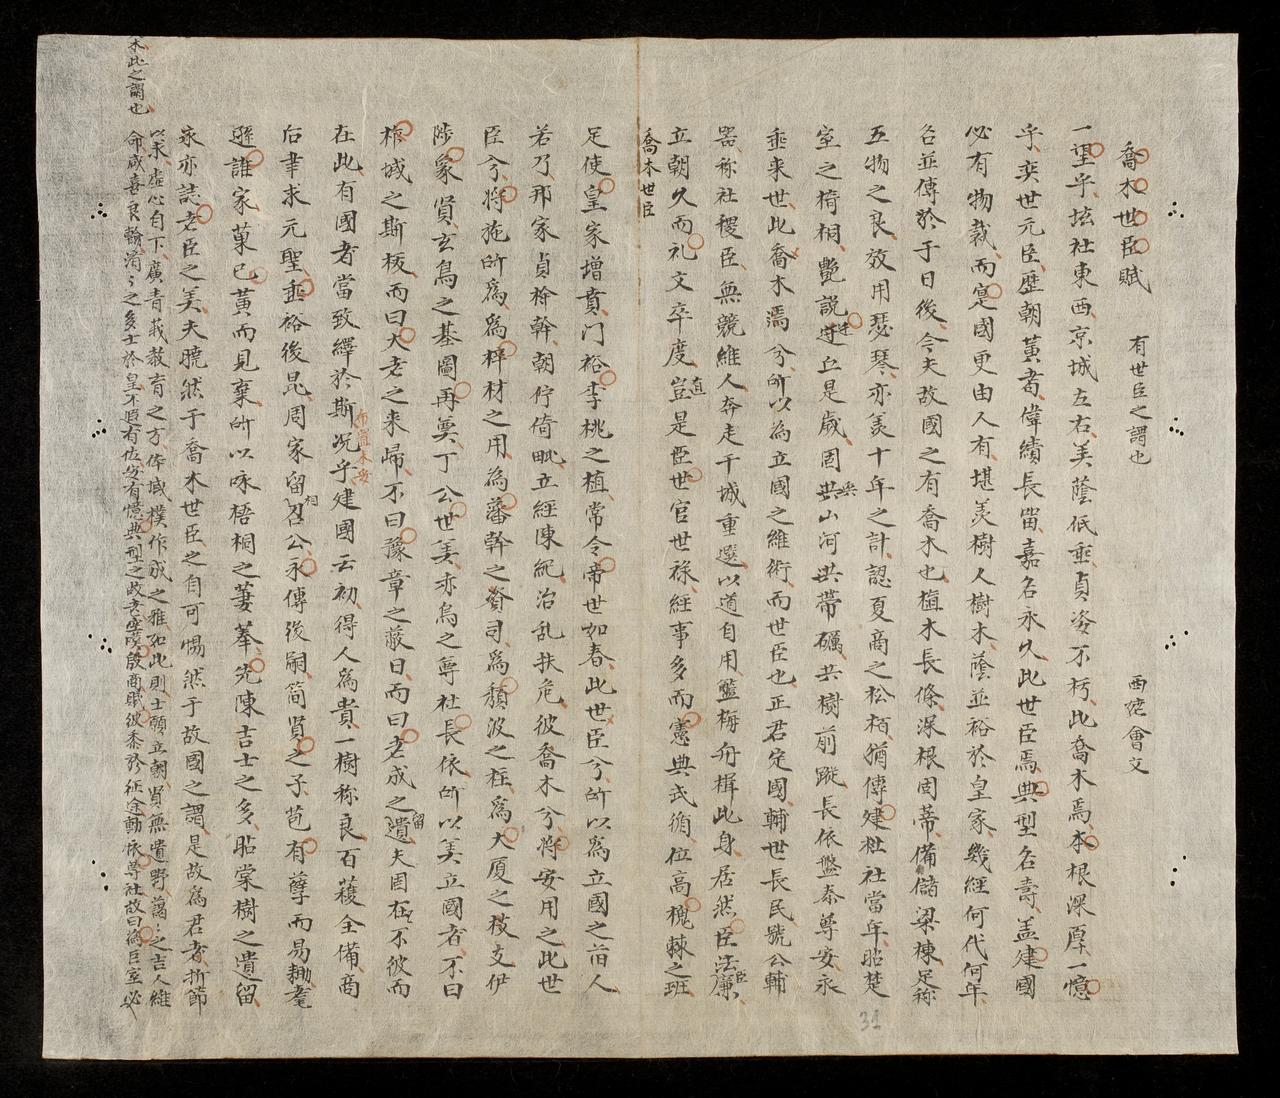 喬木世臣賦　有世臣之謂也　西㙮會文
一望乎、壇社東西、京城左右、美蔭低垂、貞姿不朽、此喬木焉、本根深厚、一憶
乎、奕世元臣、歷朝黃耇、偉績長留、嘉名永久、此世臣焉、典型名壽、盖建國
必有物裁、而寔國更由人有、堪羡樹人樹木、蔭並裕於皇家、幾經何代何年
名並傳於于日後、今夫故國之有喬木也、植木長條、深根固蒂、備儲梁棟、足称
五物之良、效用瑟琴、亦羡十年之計、認夏商之松栢、猶傳建社社當年、昭楚
室之椅桐、艷說迁丘是歲、固共山河共帶礪、共樹前蹤、長依盤泰尊安、永
垂来世、此喬木焉兮、所以為立國之維術、而世臣也、正君定國、輔世長民、號公輔
器、称社稷臣、無競維人、奔走干城重選、以道自用、鹽梅舟楫此身、居然臣法臣廉
立朝久而礼文卒度、豈直是臣世官世祿、経事多而憲典武循、位高槐棘之班
喬木世臣
足使皇家增賁、门裕李桃之植、常令帝世如春、此世臣兮、所以為立國之 人
若乃邦家貞榦、朝佇倚毗、立経陳紀、治乱扶危、彼喬木兮、將安用之、此世
臣兮、將施所為、為梓材之用、為藩幹之資、司為頹波之柱、為大厦之枝、支伊
陟象賢、玄鳥之基圖再奠、丁公世美、赤烏之尊社長依、所以美立國者、不曰
柞棫之斯柭、而曰大老之来歸、不曰豫章之蔽日、而曰老成之遺留、夫固在不彼而
在此、有國者當致繹於斯、况乎建國云初、得人為貴、一樹称良、百蒦全備、商
布置未妥
后聿求元聖、垂裕後昆、周家留召公、永傳後嗣、簡賢之子、苞有孽而易 耄
遜、誰家菓已黃而見棄、所以咏梧桐之萋菶、先陳吉士之多、昭棠樹之遺留
永亦誌老臣之美、夫曉然于喬木世臣之自、可惕然于故國之謂、是故為君者、折節
以求、虛心自下、廣青莪教育之方、倬棫樸作成之雅、如此則士願立朝、賢無遺野、藹〻之吉人維
命、咸喜良翰、濟〻之多士於皇、不顯有位、安有憶典型之故老、 殷商、賦彼黍於征途、動依尊社、故曰為巨室必
木此之謂也
31